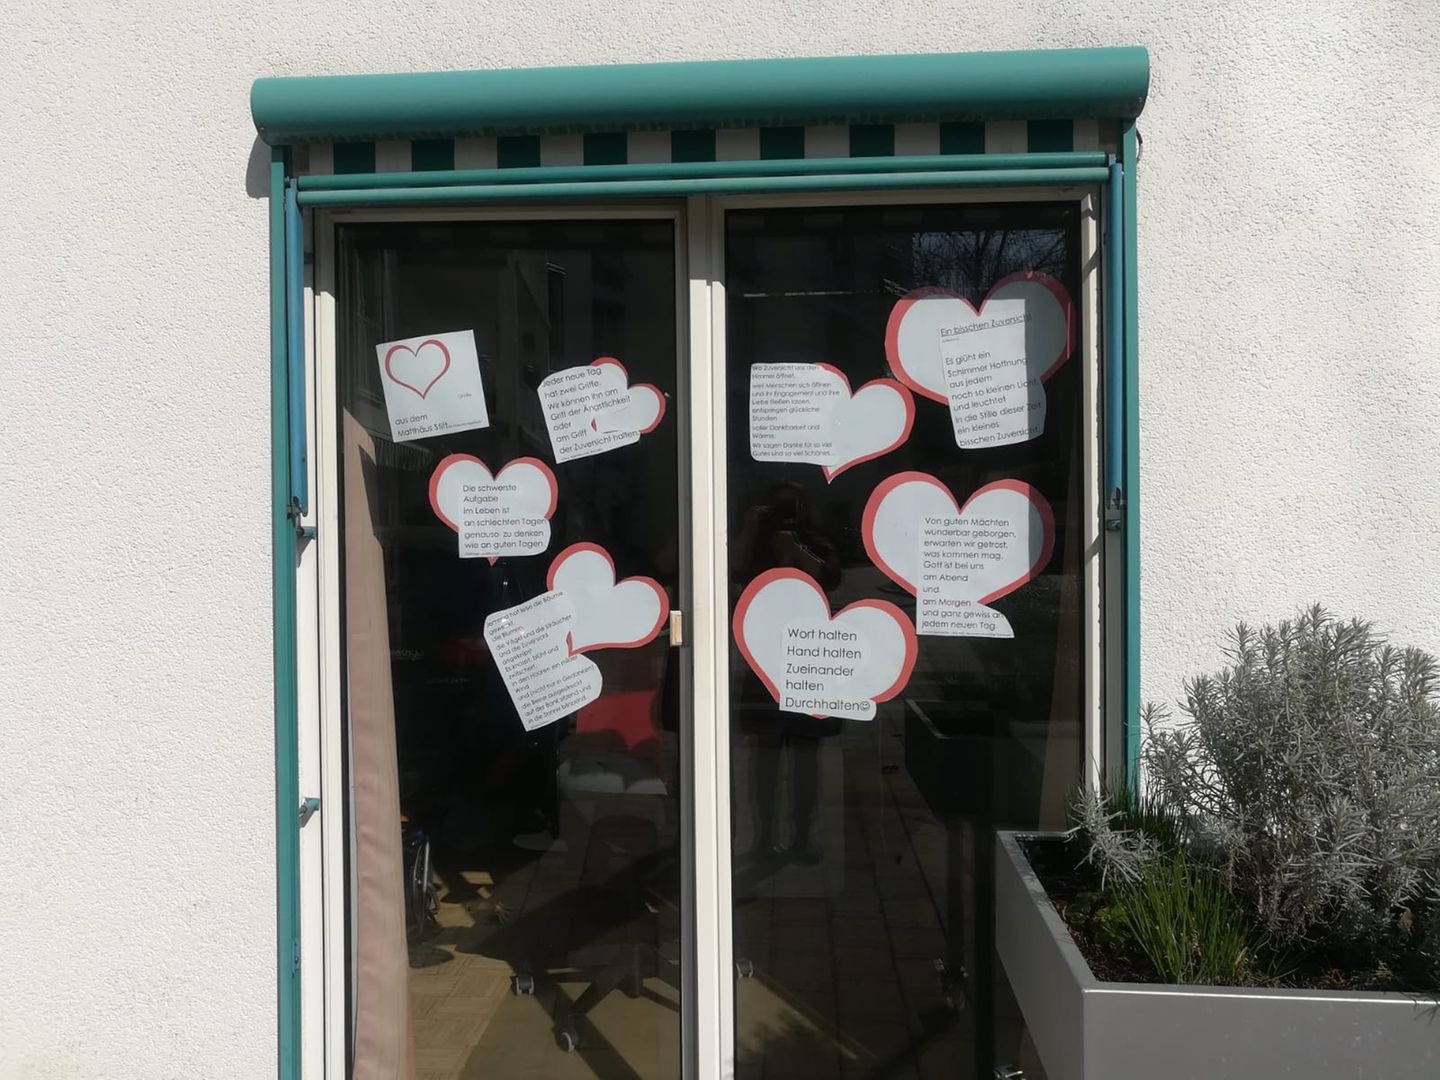 Grüße
aus dem
Matthäus Stift
Jeder neue Tag
hat zwei Griffe.
Wir können ihn am
Griff der Ängstlichkeit
oder
am Griff
der Zuversicht halten.
Die schwerste
Aufgabe
im Leben ist
an schlechten Tagen
genauso zu denken
wie an guten Tagen.
hat leise die Bäume
geweckt,
die Blumen,
die Vögel und die Sträucher
und die Zuversicht
angeknipst
Es knospt, blüht und
zwitschert,
in den Haaren ein milder
Wind
und (nicht nur in Gedanken)
die Beine ausgestreckt
auf der Bank sitzend und
in die Sonne blinzelnd.
Wo Zuversicht uns den
Himmel öffnet,
weil Menschen sich öffnen
und ihr Engagement und ihre
Liebe fließen lassen,
entspringen glückliche
Stunden
voller Dankbarkeit und
Wärme.
Wir sagen Danke für so viel
Gutes und so viel Schönes...
Ein bisschen Zuversicht
Es glüht ein
Schimmer Hoffnung
aus jedem
noch so kleinen Licht,
und leuchtet
in die Stille dieser Zeit
ein kleines
bisschen Zuversicht
Von guten Mächten
wunderbar geborgen,
erwarten wir getrost,
was kommen mag.
Gott ist bei uns
am Abend
und
am Morgen
und ganz gewiss an
jedem neuen Tag.
Wort halten
Hand halten
Zueinander
halten
Durchhalten☺